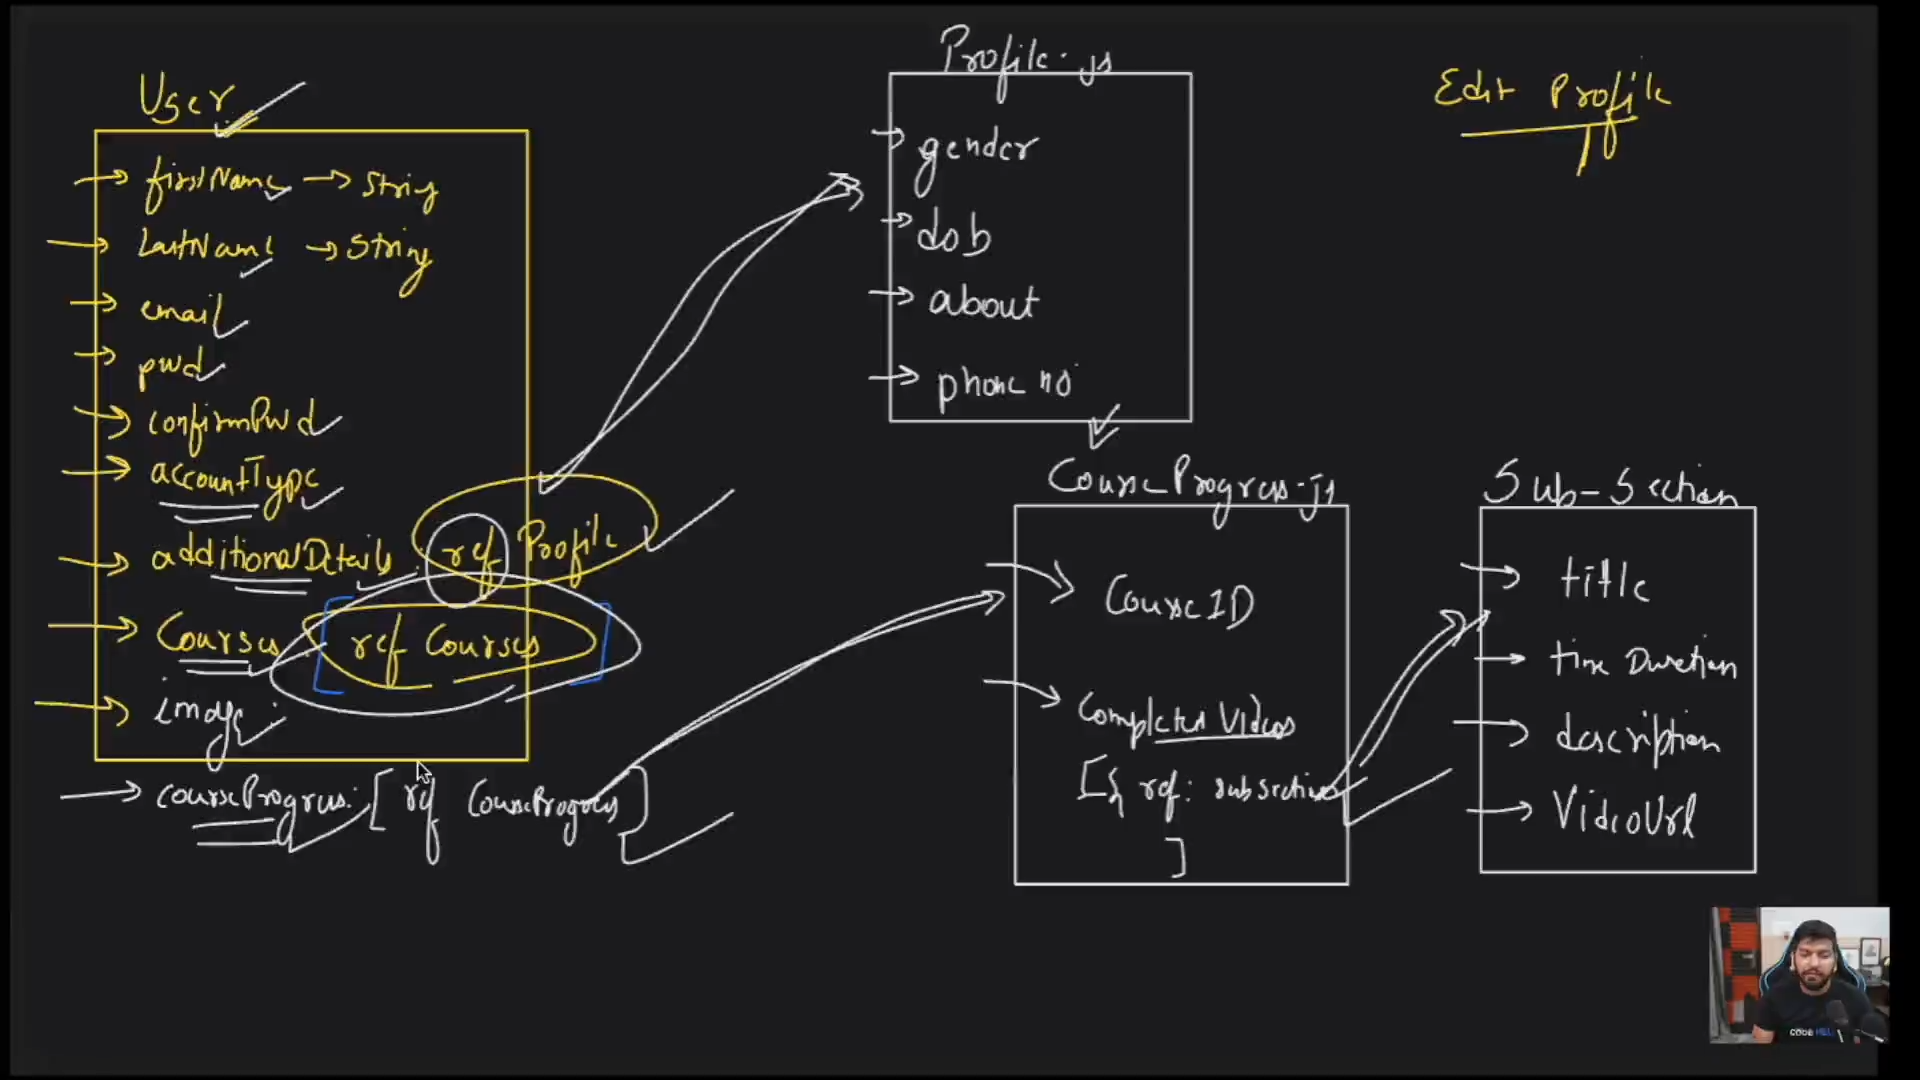 User
firstName → String
LastName → String
email
pwd
confirmPwd
accountType
additionalDetails. ref Profile
Courses [ref Courses]
image
courseProgress: [ref CourseProgress]
Profile.js
gender
dob
about
phone no
Edit Profile
CourseProgress.js
CourseID
Completed Videos
[{ ref: subsection
]
Sub-Section
title
time Duration
description
VideoUrl